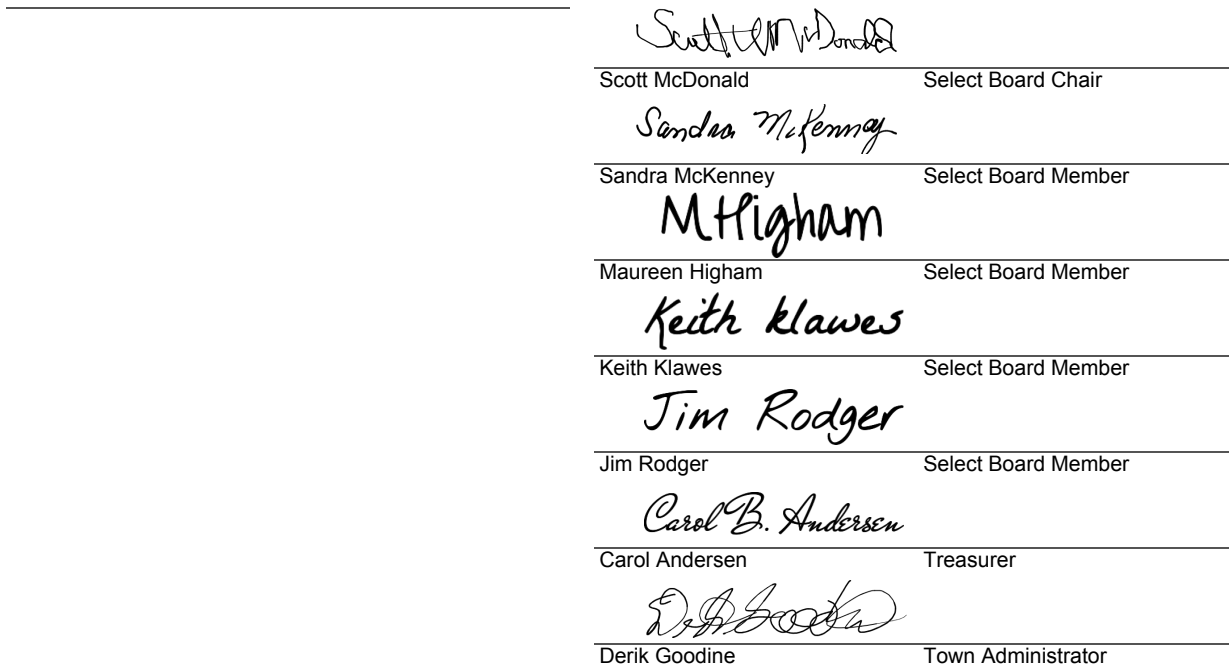 Scott McDonald
Scott McDonald Select Board Chair
Sandra McKenney
Sandra McKenney Select Board Member
MHigham
Maureen Higham Select Board Member
Keith Klawes
Keith Klawes Select Board Member
Jim Rodger
Jim Rodger Select Board Member
Carol B. Andersen
Carol Andersen Treasurer
Derik Goodine Town Administrator